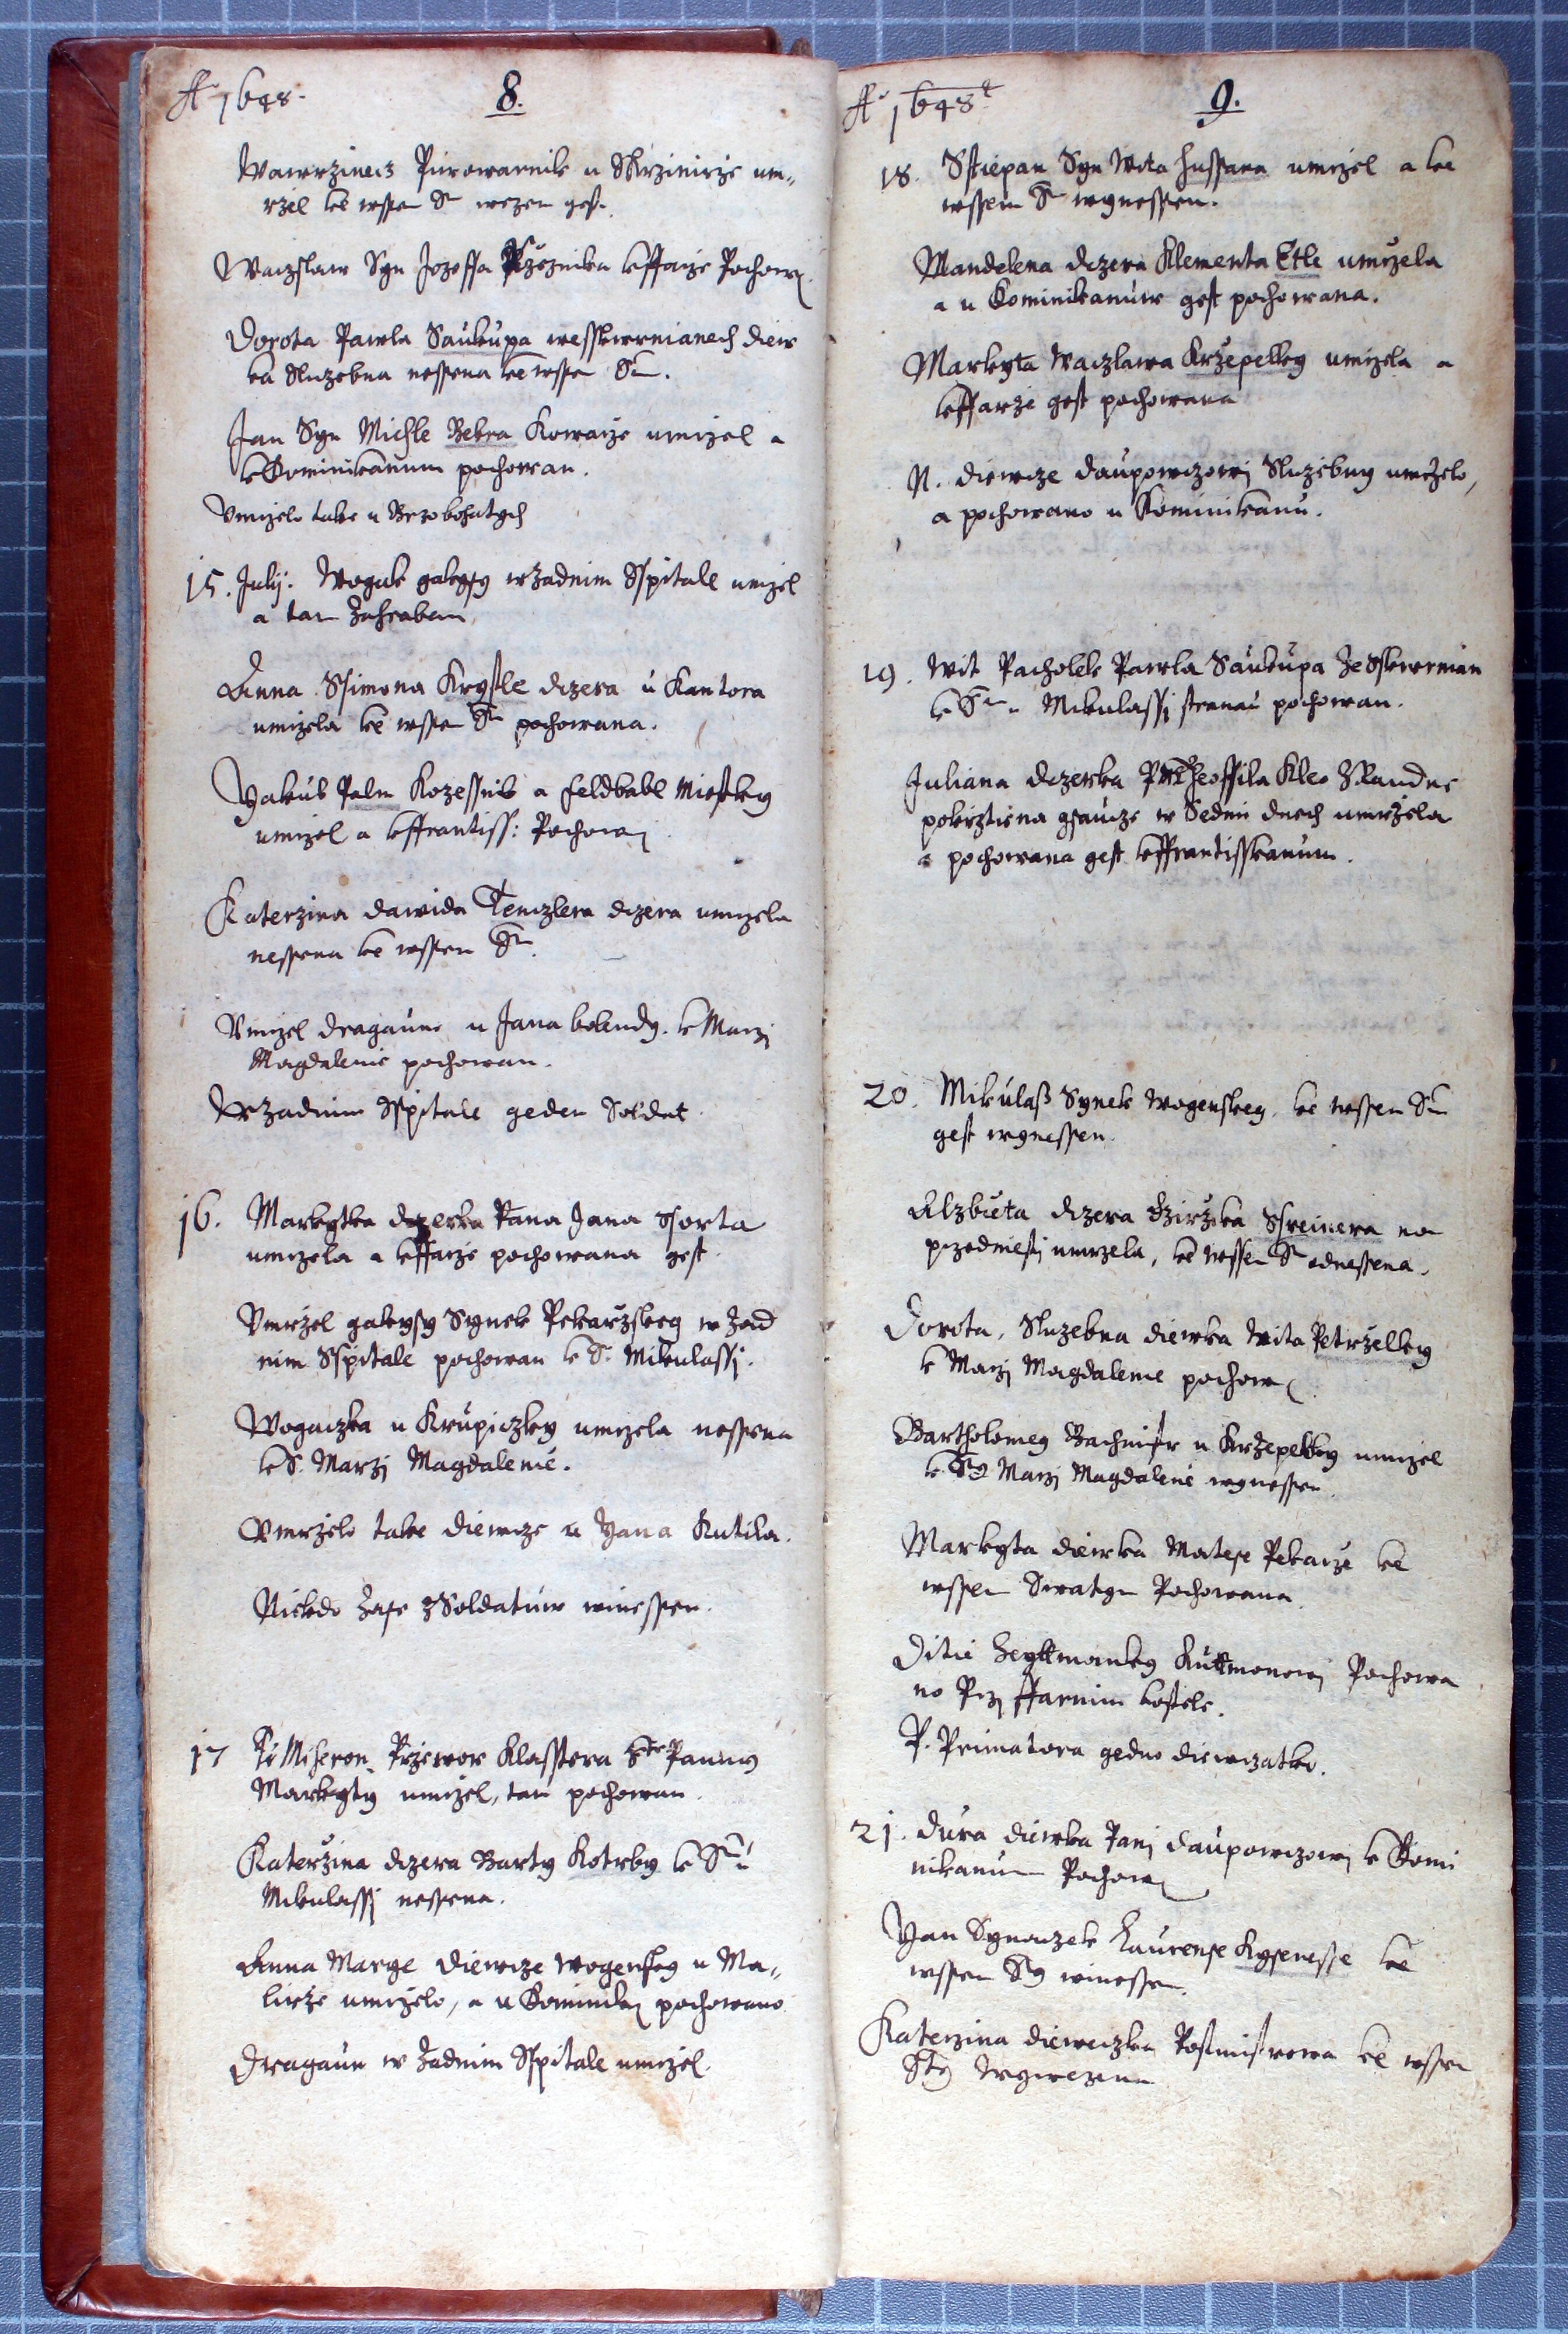 A° 1648.
8.
Wawrzinecz Piwowarnik u Skrziwirze um„
rzel ke wssem S. wezen gest.
Waczslaw Syn Jozeffa Rzeznika kffarze Pochow
Dorota Pawla Saukupa wesskwrnianech diew
ka Sluzebna nessena ke wssem S.
Jan Syn Michle Bebra Kowarze umrzel a
kDominikanum pochowan.
Vmrzelo take u Brzobohatych
15. Julij. Wogak gakysy wzadnim Sspitale umrzel
a tam Zahraban
Anna Ssimona Krystle dczera u Kantora
umrzela ke wssem S. pochowana.
Yakub Palm Kozessnik a feldbabl Miestky
umrzel a kffrantiss: Pochow
Katerzina dawida Tenczlera dczera umrzela
nessena ke wssem S.
Vmrzel dragaun u Jana bobudy. k Marzj
Magdalenie pochowan.
Wzadnim Sspitale geden Soldat
16. Markytka dczerka Pana Jana Ssorta
umrzela a kffarze pochowana gest.
Vmrzel gakysy Synek Pekarzskeg w Zad
nim Sspitale pochowan k S. Mikulassj.
Wogaczka u Krupiczky umrzela nessena
k S. Marzj Magdalenie.
Vmrzelo take diewcze u Yana Kutila.
Niekdo Zase z Soldatuw winessen.
17 Miseron, Przewor Klasstera Panny
Markyty umrzel, tam pochowan.
Katerzina dczera Barty Kotrby k S.
Mikulassj nessena.
Anna Marge diewcze wogenskeg u Ma„
lirze umrzelo, a u Dominik pochowano
Dragaun w Zadnim Sspitale umrzel.
A° 1648
9.
18. Sstiepan Syn Wita Hussana umrzel a ke
wssem S. wynessen.
Mandelena dczera Klementa Etle umrzela
a u Dominikanuw gest pochowana.
Markyta Waczlawa Krzepelky umrzela a
kffarze gest pochowana
N. diewcze daupowczowj Sluzebny umrzelo,
a pochowano u Dominikanu.
19. Wit Pacholek Pawla Saukupa Ze Sskwrnian
k S. Mikulassj stranau pochowan.
Juliana dczerka Theoffila Kleo ZRaudne
pokrztiena gsaucze w Sedmi dnech umrzela
a pochowana gest kffrantisskanum.
20. Mikulass Synek Wogenskeg. ke wssem S.
gest wynessen.
Alzbieta dczera Girzika Ssreinera na
przedmiestj umrzela, ke wssem S. odnessena.
Dorota, Sluzebna diewka Wita Petrzelky
k Marzj Magdalenie pochow
Bartholomey Bachmistr u Krzepelky umrzel
k S. Marzj Magdalenie wynessen
Markyta diewka Matese Pekarze ke
wssem Swatym Pochowana.
Ditie Heyttmanky Kuttmonowj Pochowa
no Przj ffarnim kostele.
P. Primatora gedno diewczatko.
21. dura diewka Panj daupowczowj k Domi
nikanum Pochow
Yan Synaczek Laurense Kysenesse ke
wssem S. winessen.
Katerzina diewczka Postmistrowa ke wssem
Sty Wywezena